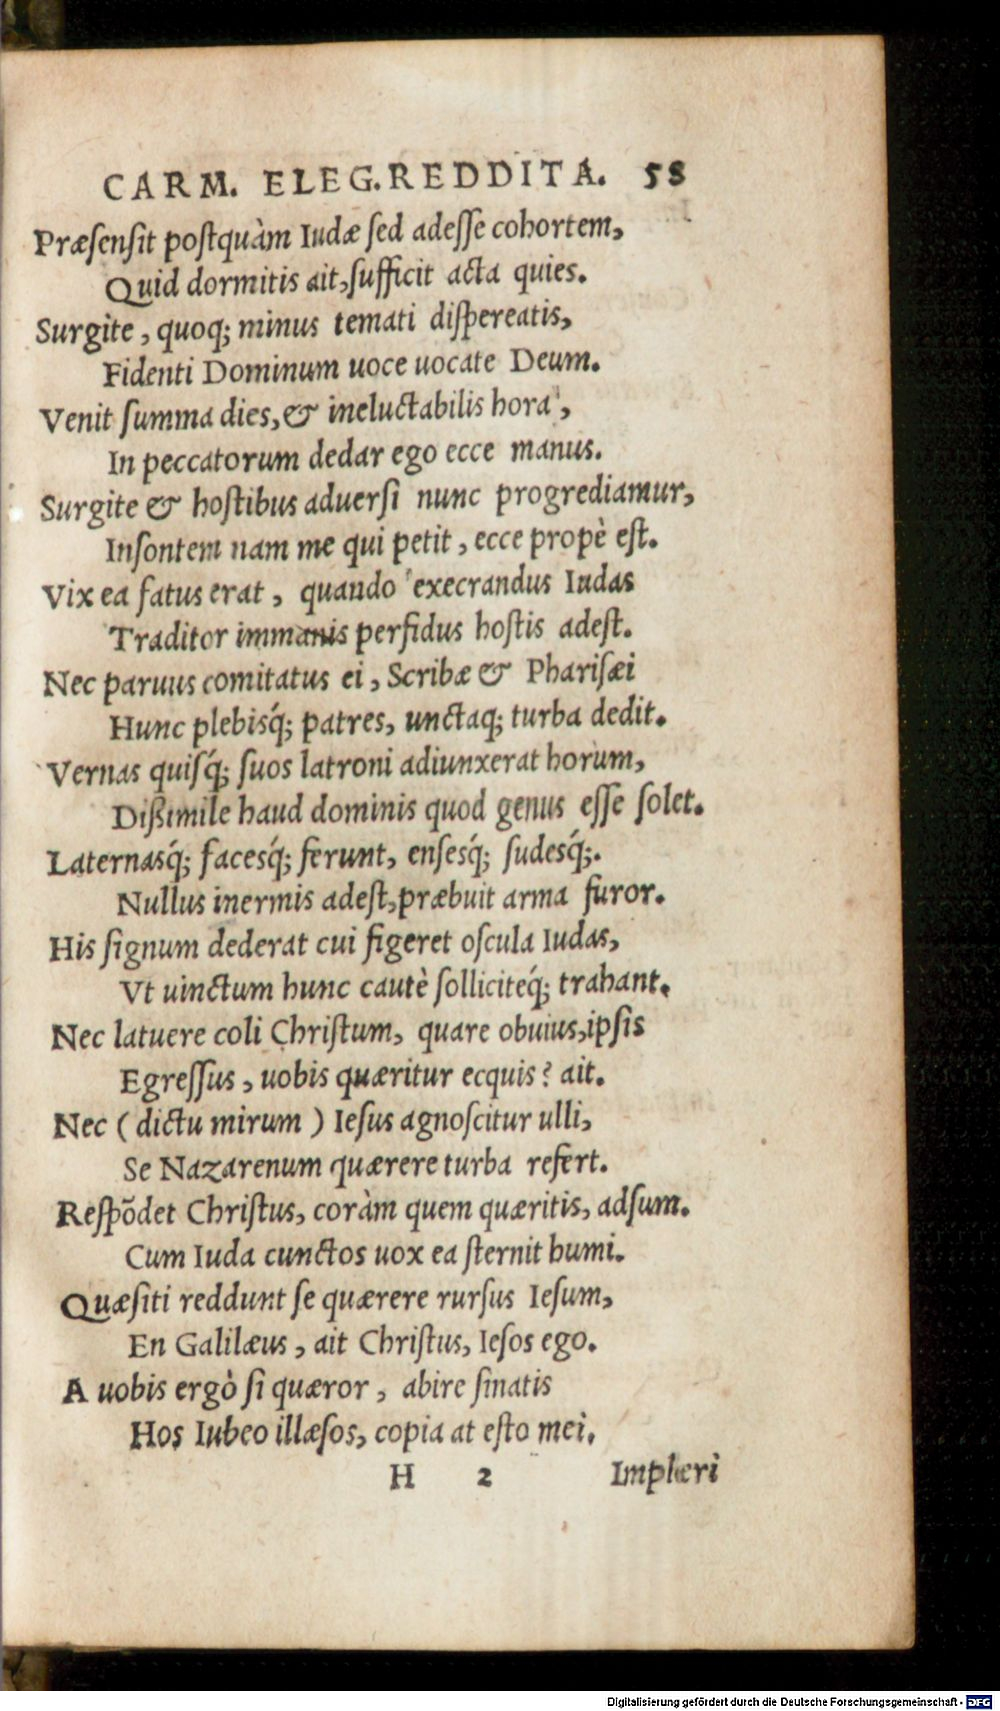 CARM. ELEG. REDDITA. 58
Præsensit postquàm Iudæ sed adesse cohortem,
Quid dormitis ait, sufficit acta quies.
Surgite, quoq; minus temati dispereatis,
Fidenti Dominum uoce uocate Deum.
Venit summa dies, & ineluctabilis hora,
In peccatorum dedar ego ecce manus.
Surgite & hostibus aduersi nunc progrediamur,
Insontem nam me qui petit, ecce propè est.
Vix ea fatus erat, quando execrandus Iudas
Traditor immanis perfidus hostis adest.
Nec paruus comitatus ei, Scribæ & Pharisæi
Hunc plebisq́; patres, unctaq; turba dedit.
Vernas quisq́; suos latroni adiunxerat horum,
Dißimile haud dominis quod genus esse solet.
Laternasq́; facesq́; ferunt, ensesq́; sudesq́;.
Nullus inermis adest, præbuit arma furor.
His signum dederat cui figeret oscula Iudas,
Vt uinctum hunc cautè solliciteq́; trahant.
Nec latuere coli Christum, quare obuius, ipsis
Egressus, uobis quæritur ecquis? ait.
Nec (dictu mirum) Iesus agnoscitur ulli,
Se Nazarenum quærere turba refert.
Respõdet Christus, coràm quem quæritis, adsum.
Cum Iuda cunctos uox ea sternit humi.
Quæsiti reddunt se quærere rursus Iesum,
En Galilæus, ait Christus, Iesos ego.
A uobis ergò si quæror, abire sinatis
Hos Iubeo illæsos, copia at esto mei.
H 2 Implæri
Digitalisierung gefördert durch die Deutsche Forschungsgemeinschaft - DFG